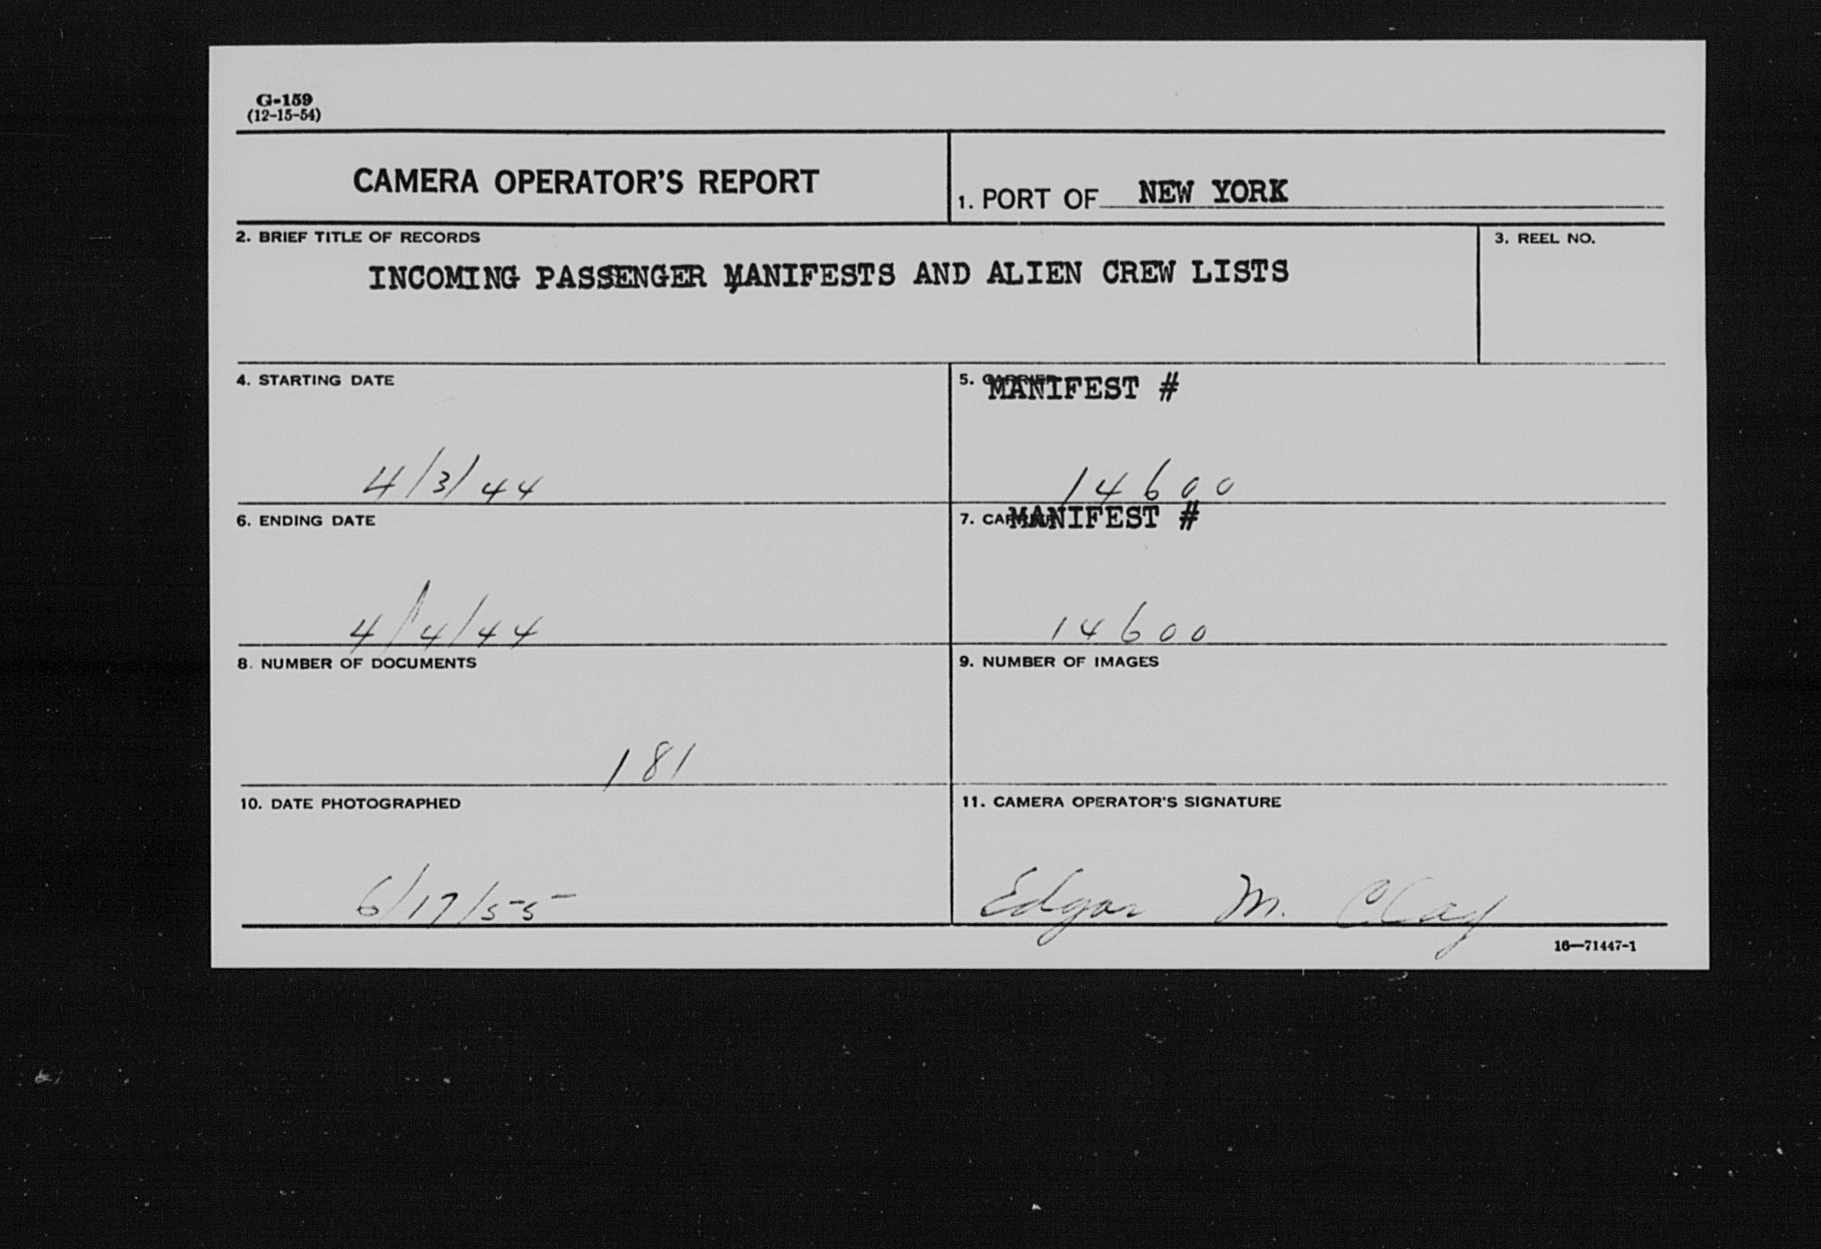 G-159
(12-15-54)
CAMERA OPERATOR'S REPORT
1. PORT OF NEW YORK
2. BRIEF TITLE OF RECORDS
INCOMING PASSENGER MANIFESTS AND ALIEN CREW LISTS
3. REEL NO.
4. STARTING DATE
4/3/44
5. CARRIER
MANIFEST #
14600
6. ENDING DATE
4/4/44
7. CARRIER
MANIFEST #
14600
8. NUMBER OF DOCUMENTS
181
9. NUMBER OF IMAGES
10. DATE PHOTOGRAPHED
6/17/55
11. CAMERA OPERATOR'S SIGNATURE
Edgar M. Clay
16—71447-1